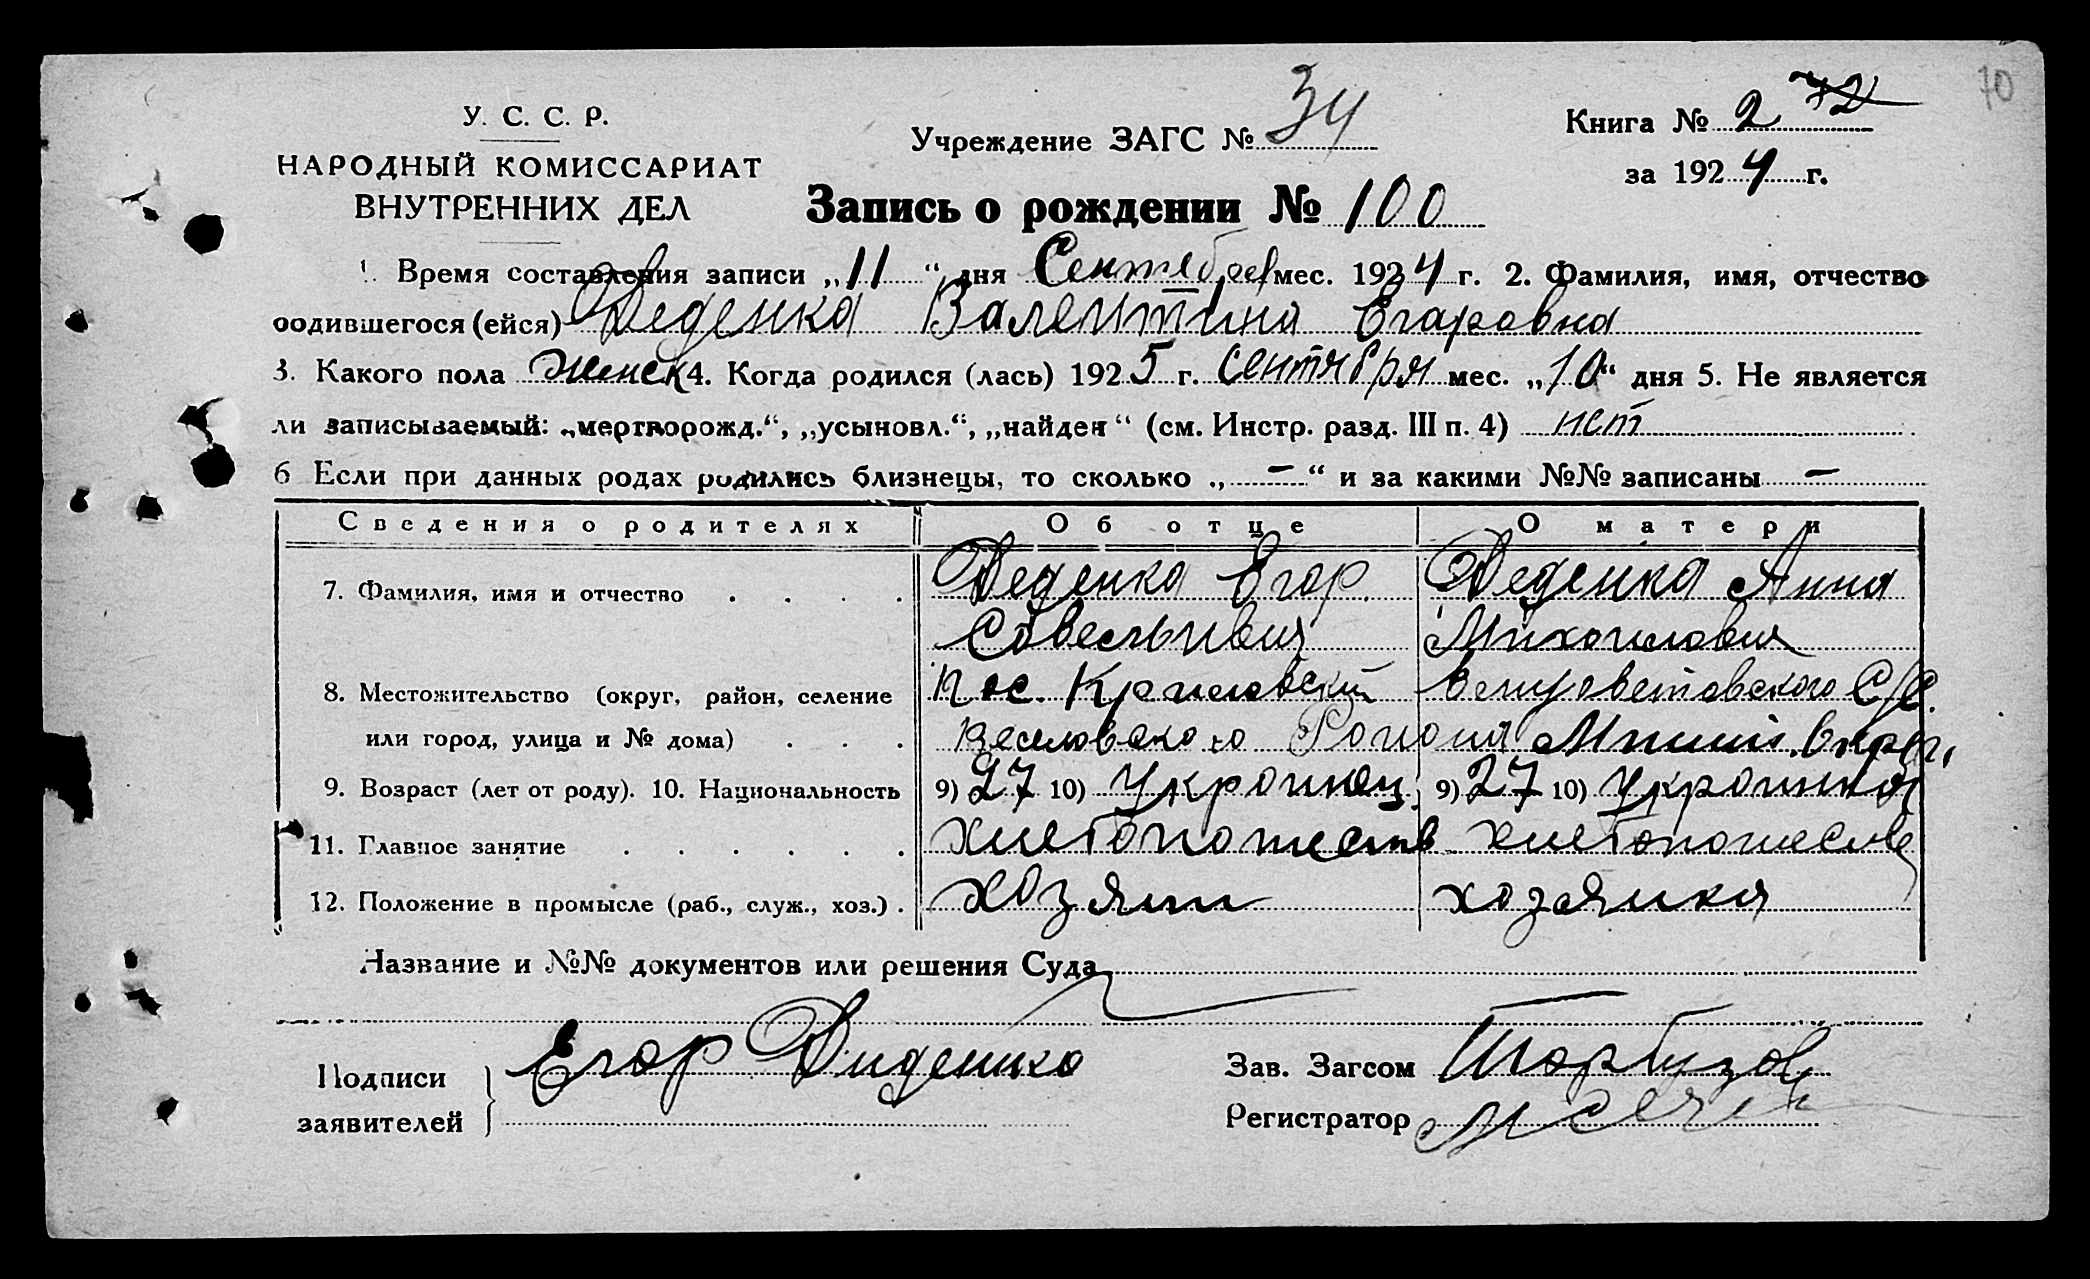 70
У. С. С. Р.
НАРОДНЫЙ КОМИССАРИАТ
ВНУТРЕННИХ ДЕЛ
Учреждение ЗАГС № 34
Книга № 2 72
за 1924 г.
Запись о рождении № 100
1. Время составления записи „11“ дня Сентября мес. 1924 г. 2. Фамилия, имя, отчество
родившегося (ейся) Деденка Валентина Егаровна
3. Какого пола женск 4. Когда родился (лась) 1925 г. Сентября мес. „10“ дня 5. Не является
ли записываемый: „мертворожд.“, „усыновл.“, „найден“ (см. Инстр. разд. III п. 4) нет
6 Если при данных родах родились близнецы, то сколько „—“ и за какими №№ записаны —
Сведения о родителях Об отце О матери
7. Фамилия, имя и отчество . . . . Деденка Егор Деденка Анна
Савельивич Михайловна
8. Местожительство (округ, район, селение пос. С/С.
или город, улица и № дома) . . . Веселовского Району
9. Возраст (лет от роду). 10. Национальность 9) 27 10) Украинец 9) 27 10) Украинка
11. Главное занятие . . . . . . Хлебопашеств хлебопашеств
12. Положение в промысле (раб., служ., хоз.) . хозяин хозяйка
Название и №№ документов или решения Суда
Подписи заявителей Егор Диденко
Зав. Загсом
Регистратор